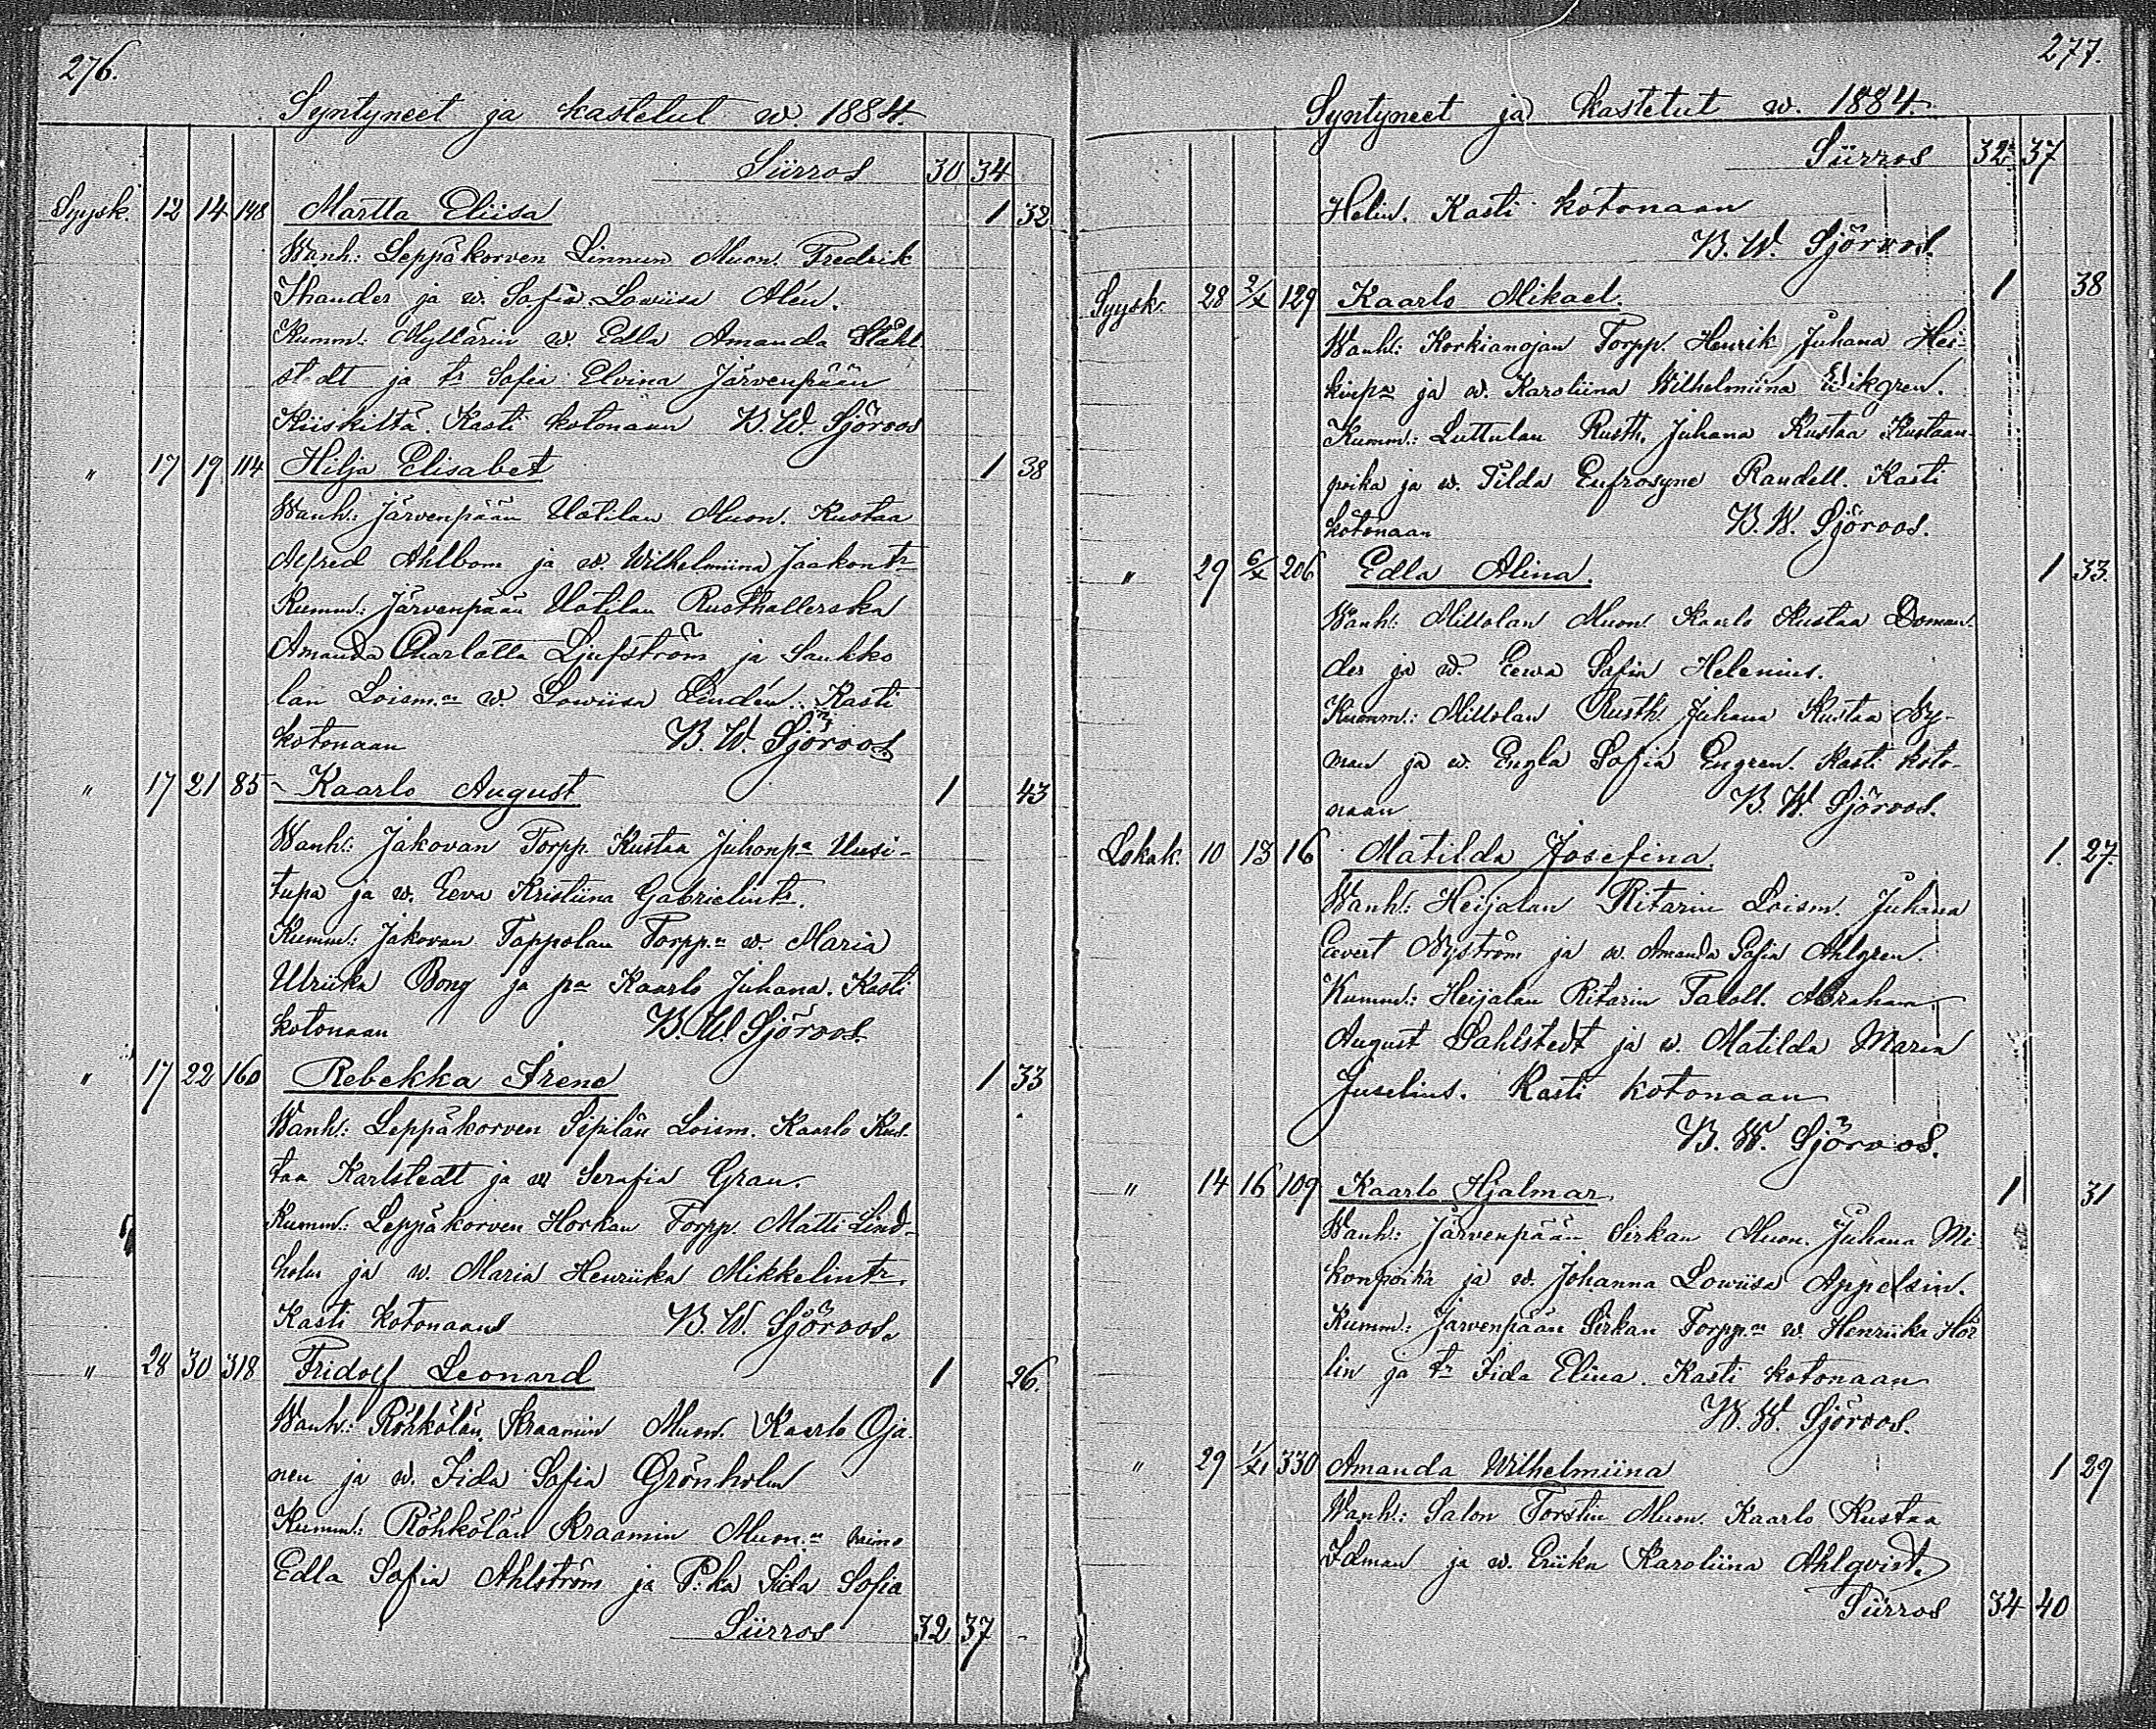 276.
Syntyneet ja kastetut w. 1884.
Siirros 30 34
Syysk. 12 14 148 Martta Eliisa 1 32
Wanh: Leppäkorven Linnun Muon. Fredrik
Thander ja w. Sofia Lowiisa Alén.
Kumm: Myllärin w. Edla Amanda Ståhl
stedt ja tr Sofia Elvina Järvenpään
Kiiskiltä. Kasti kotonaan B. W. Sjöroos
" 17 19 114 Hilja Elisabet 1 38
Wanh: Järvenpään Uotilan Muon. Kustaa
Alfred Ahlbom ja w. Wilhelmiina Jaakontr
Kumm: Järvenpään Uotilan Rusthallerska
Amanda Charlotta Ljufström ja Saukko
lan Loism.n w. Lowiisa Lindén. Kasti
kotonaan B. W. Sjöroos
" 17 21 85 Kaarlo August 1 43
Wanh: Jakovan Torpp. Kustaa Juhonpa Uusi-
tupa ja w. Eeva Kristiina Gabrielintr.
Kumm: Jakovan Tappolan Torpp.n w. Maria
Ulriika Bong ja pa Kaarlo Juhana. Kasti
kotonaan B. W. Sjöroos.
" 17 22 160 Rebekka Irene 1 33
Wanh: Leppäkorven Sipilän Loism. Kaarlo Kus-
taa Karlstedt ja w Serafia Gran.
Kumm: Leppäkorven Horkan Torpp. Matti Lind-
holm ja w. Maria Henriika Mikkelintr.
Kasti kotonaan B. W. Sjöroos.
" 28 30 318 Fridolf Leonard 1 26.
Wanh: Röhkölän Kraamin Muon. Kaarlo Oja-
nen ja w. Iida Sofia Grönholm
Kumm: Röhkölän Kraamin Muon.n waimo
Edla Sofia Ahlström ja P:ka Iida Sofia
Siirros 32 37
277.
Syntyneet ja kastetut w. 1884.
Siirros 32 37
Helin. Kasti kotonaan
B. W. Sjöroos.
Syysk. 28 2/X 129 Kaarlo Mikael. 1 38
Wanh: Korkianojan Torpp. Henrik Juhana Hei-
kinpa ja w. Karoliina Wilhelmiina Wikgren.
Kumm: Luttulan Rusth. Juhana Kustaa Kustaan-
poika ja w. Tilda Eufrosyne Randell. Kasti
kotonaan B. W. Sjöroos.
" 29 6/X 206 Edla Alina. 1 33.
Wanh: Millolan Muon. Kaarlo Kustaa Doman-
der ja w. Eewa Sofia Helenius.
Kumm: Millolan Rusth. Juhana Kustaa Ny-
man ja w. Engla Sofia Engren. Kasti koto-
naan B. W. Sjöroos.
Lokak. 10 13 16 Matilda Josefina. 1. 27.
Wanh: Heijalan Ritarin Loism. Juhana
Evert Nyström ja w. Amanda Sofia Ahlgren.
Kumm: Heijalan Ritarin Taloll. Abraham
August Dahlstedt ja w. Matilda Maria
Juselius. Kasti kotonaan
B. W. Sjöroos.
" 14 16 109 Kaarlo Hjalmar. 1 31
Wanh: Järvenpään Sirkan Muon. Juhana Mi-
konpoika ja w. Johanna Lowiisa Appelsin.
Kumm: Järvenpään Sirkan Torpp.n w. Henriika Hör
lin ja tr Iida Elina. Kasti kotonaan
B. W. Sjöroos.
" 29 1/XI 330 Amanda Wilhelmiina 1 29
Wanh: Salon Torstin Muon. Kaarlo Kustaa
Idman ja w. Eriika Karoliina Ahlqvist.
Siirros 34 40